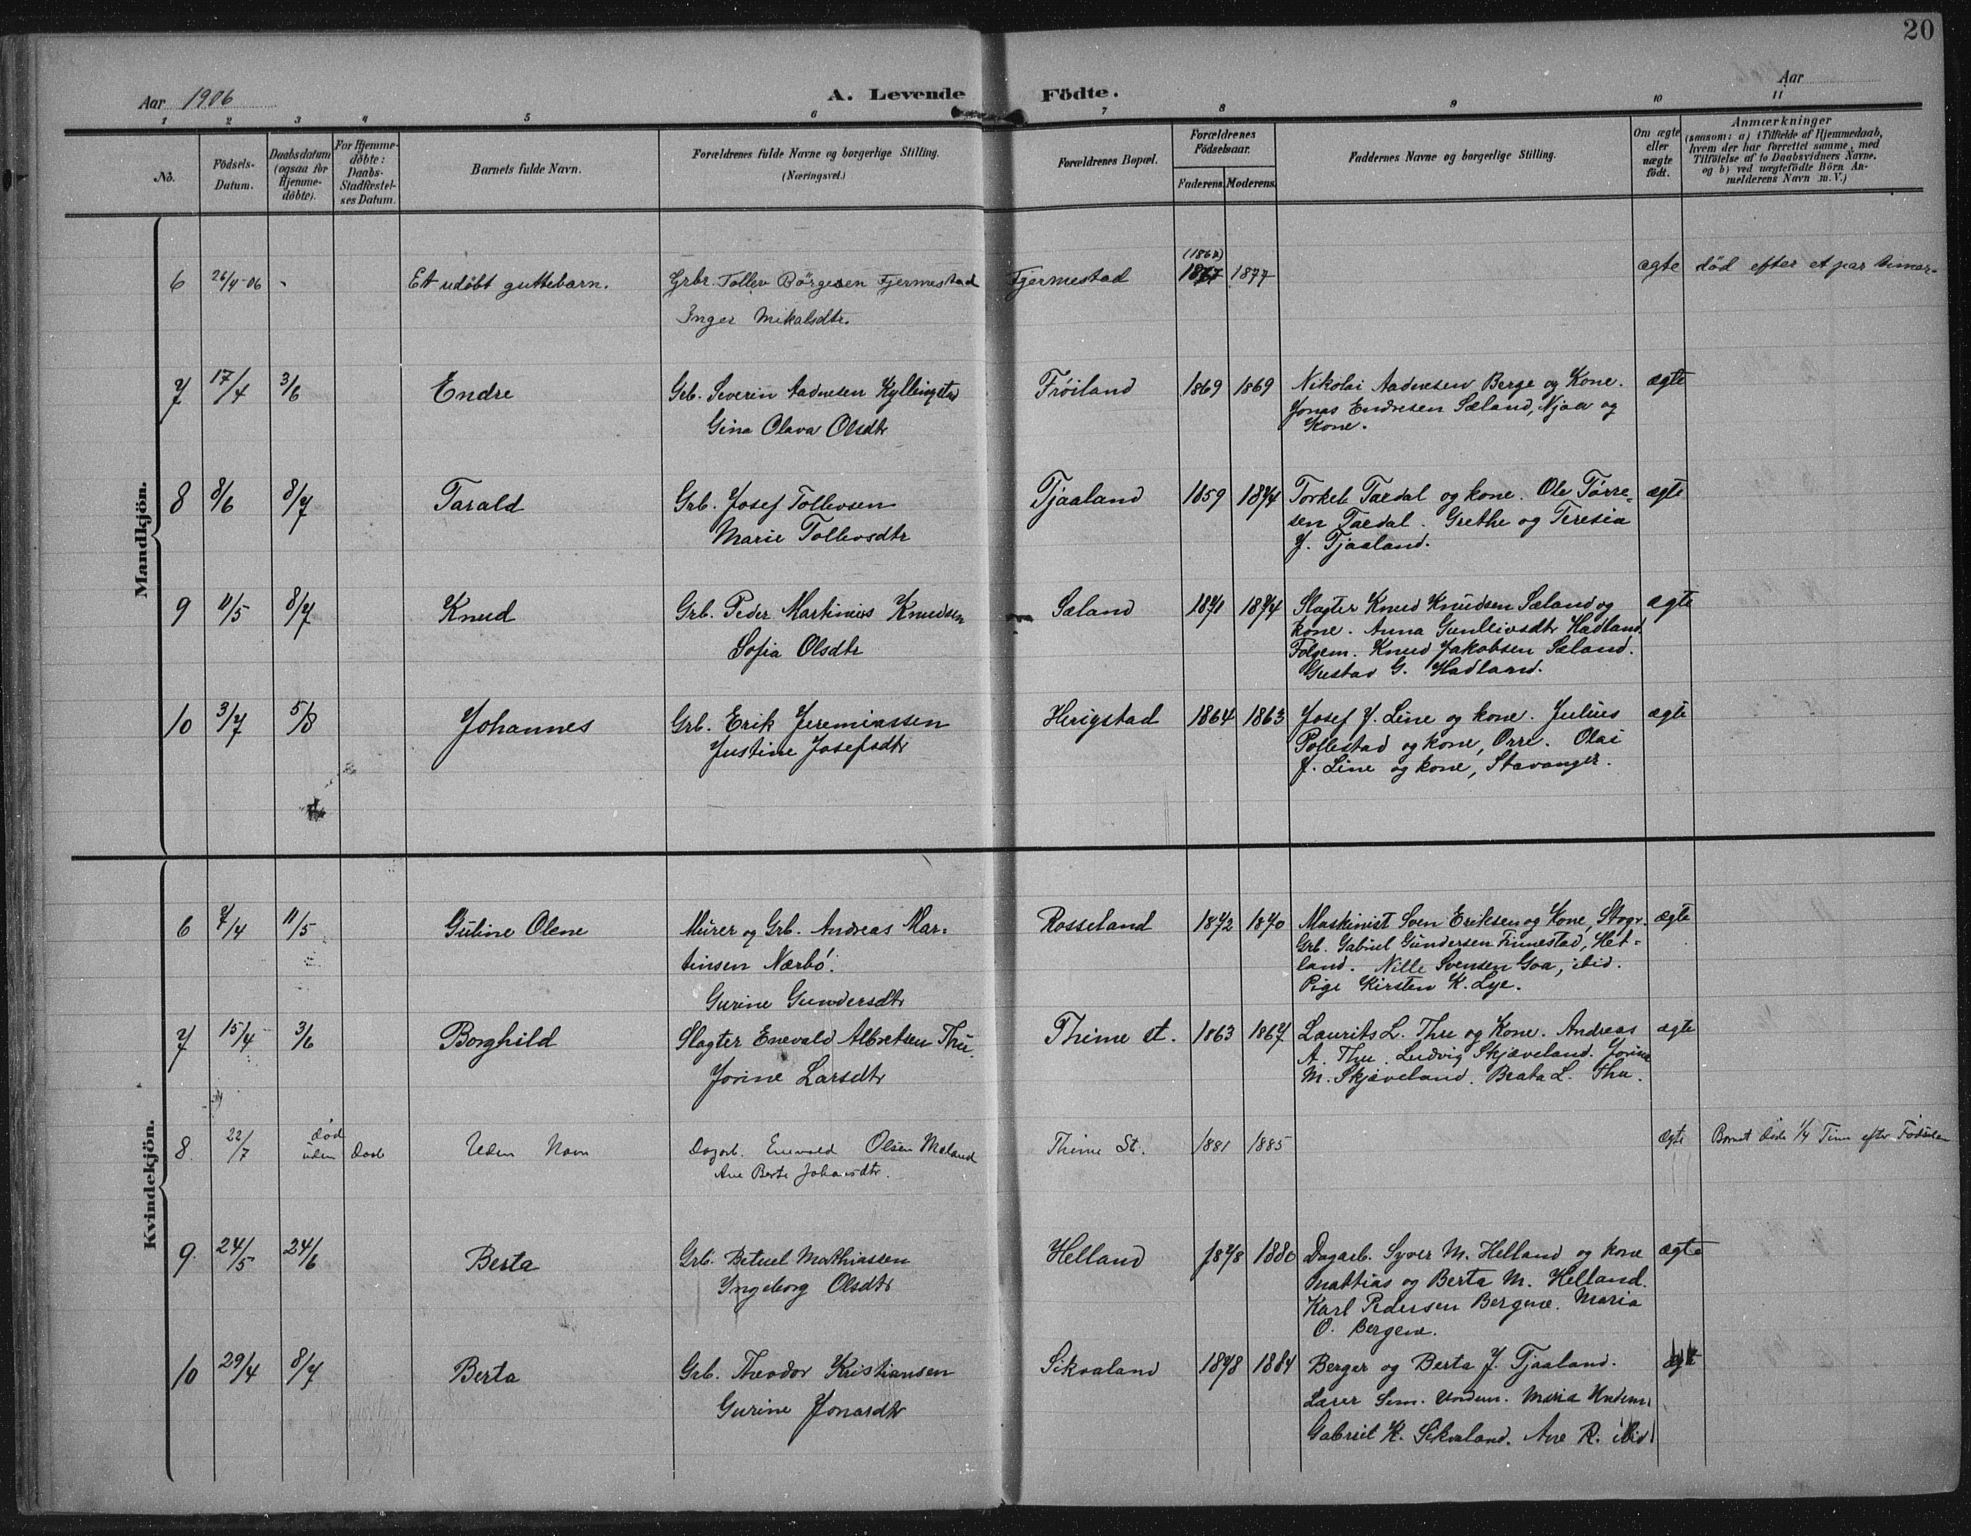 20
Aar 1906
A. Levende Födte.
Aar
1 2 3 4 5 6 7 8 9 10 11
No.
Födsels-Datum.
Daabsdatum (ogsaa for Hjemme-döbte).
For Hjemme-döbte: Daabs-Stadfæstel-ses Datum.
Barnets fulde Navn.
Forældrenes fulde Navne og borgerlige Stilling.
(Næringsvei.)
Forældrenes Bopæl.
Forældrenes Födselsaar.
Faderens. Moderens.
Faddernes Navne og borgerlige Stilling.
Om ægte eller uægte födt.
Anmærkninger
(saasom: a) i Tilfælde af Hjemmedaab,
hvem der har forrettet samme, med
Tilföielse af to Daabsvidners Navne.
og b) ved uægtefödte Börn An-
melderens Navn m. V.)
Mandkjön.
6 26/4-06 - Et udøbt guttebarn. Grbr. Tollev Börgesen Fjermestad Fjermestad (1862) 1867 1877 ægte død efter et par timer-
Inger Mikalsdtr.
7 17/4 3/6 Endre Grb. Severin Aadnesen Kyllingstad Fröiland 1869 1869 Nikolai Aadnesen Berge og Kone. ægte
Gina Olava Olsdtr Jonas Endresen Sæland, Njaa og
Kone.
8 8/6 8/7 Tarald Grb. Josef Tollevsen Tjaaland 1859 1874 Torkel Taedal og kone. Ole Tørre- ægte
Marie Tollevsdtr sen Taedal. Grethe og Teresia
J. Tjaaland.
9 11/5 8/7 Knud Grb. Peder Martinius Knudsen Sæland 1871 1874 Slagter Knud Knudsen Sæland og ægte
Sofia Olsdtr kone. Anna Gunleivsdtr Hadland
Folgem. Knud Jakobsen Sæland.
Gustav G. Hadland.
10 3/7 5/8 Johannes Grb. Erik Jeremiassen Herigstad 1864 1863 Josef J. Line og kone. Julius ægte
Justine Josefsdtr Pollestad og kone, Orre. Olai
J. Line og kone, Stavanger.
Kvindekjön.
6 7/4 11/5 Guline Olene Murer og Grb. Andreas Mar- Rosseland 1872 1870 Maskinist Sven Eriksen og Kone, Stogr. ægte
tinsen Nærbö. Grb. Gabriel Gundersen Finnestad, Het-
Gurine Gundersdtr land. Nille Svensen Goa, ibid.
Pige Kirsten K. Lye.
7 15/4 3/6 Borghild Slagter Enevald Albretsen Thu. Thime st. 1863 1867 Laurits L. Thu og Kone. Andreas ægte
Jorine Larsdtr A. Thu. Ludvig Skjæveland. Jorine
M. Skjæveland. Beata L. Thu.
8. 22/7 død uden daab Uden Navn Dagarb. Enevald Olsen Mæland Thime St. 1881 1885 ægte Barnet døde 1/4 Time efter Fødselen
Ane Berte Johansdtr.
9. 24/5 24/6 Berta Grb. Betuel Mathiassen Helland 1878 1880 Dagarb. Syver M. Helland og kone ægte
Ingeborg Olsdtr Mattias og Berta M. Helland.
Karl Pedersen Bergene. Maria
O. Bergene.
10 29/4 8/7 Berta Grb. Theodor Kristiansen Sikvaland 1878 1884 Berger og Berta J. Tjaaland. ægte
Gurine Jonasdtr Lærer Sem. Undem. Maria Undem.
Gabriel K. Sikvaland. Ane R. ibid